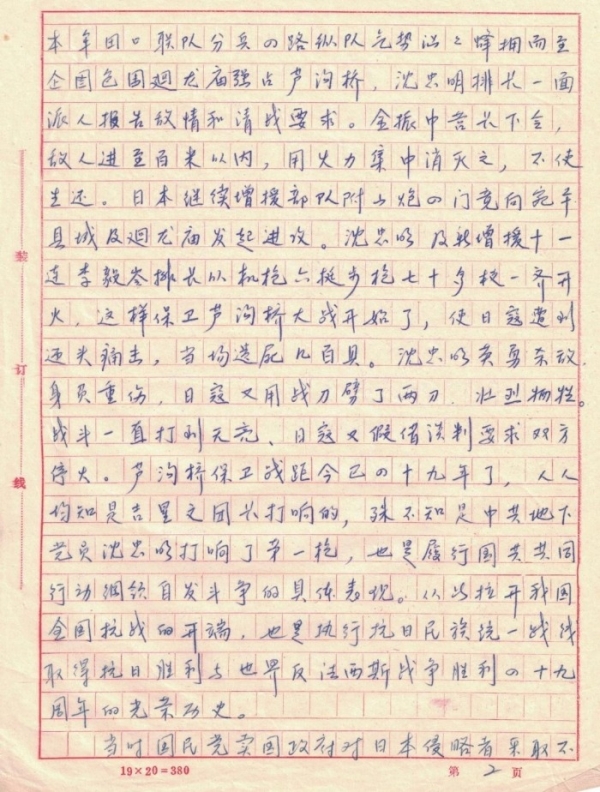 本牟田口联队分兵四路纵队气势汹汹蜂拥而至
企图包围廻龙庙强占芦沟桥，沈忠明排长一面
派人报告敌情和请战要求。金振中营长下令，
敌人进至百米以内，用火力集中消灭之，不使
生还。日本继续增援部队附山炮四门竟向宛平
县城及廻龙庙发起进攻。沈忠明及新增援十一
连李毅岑排长以机枪六挺步枪七十多枝一齐开
火，这样保卫芦沟桥大战开始了，使日寇遭到
迎头痛击，当场造死几百具。沈忠明英勇杀敌
身负重伤，日寇又用战刀劈了两刀，壮烈牺牲。
战斗一直打到天亮、日寇又假借谈判要求双方
停火。芦沟桥保卫战距今已四十九年了，人人
均知是吉星文团长打响的，殊不知是中共地下
党员沈忠明打响了第一枪，也是履行国共共同
行动纲领自发斗争的具体表现。从此拉开我国
全国抗战的开端，也是执行抗日民族统一战线
取得抗日胜利与世界反法西斯战争胜利四十九
周年的光荣历史。
当时国民党卖国政府对日本侵略者采取不
装
订
线
19×20=380
第 2 页